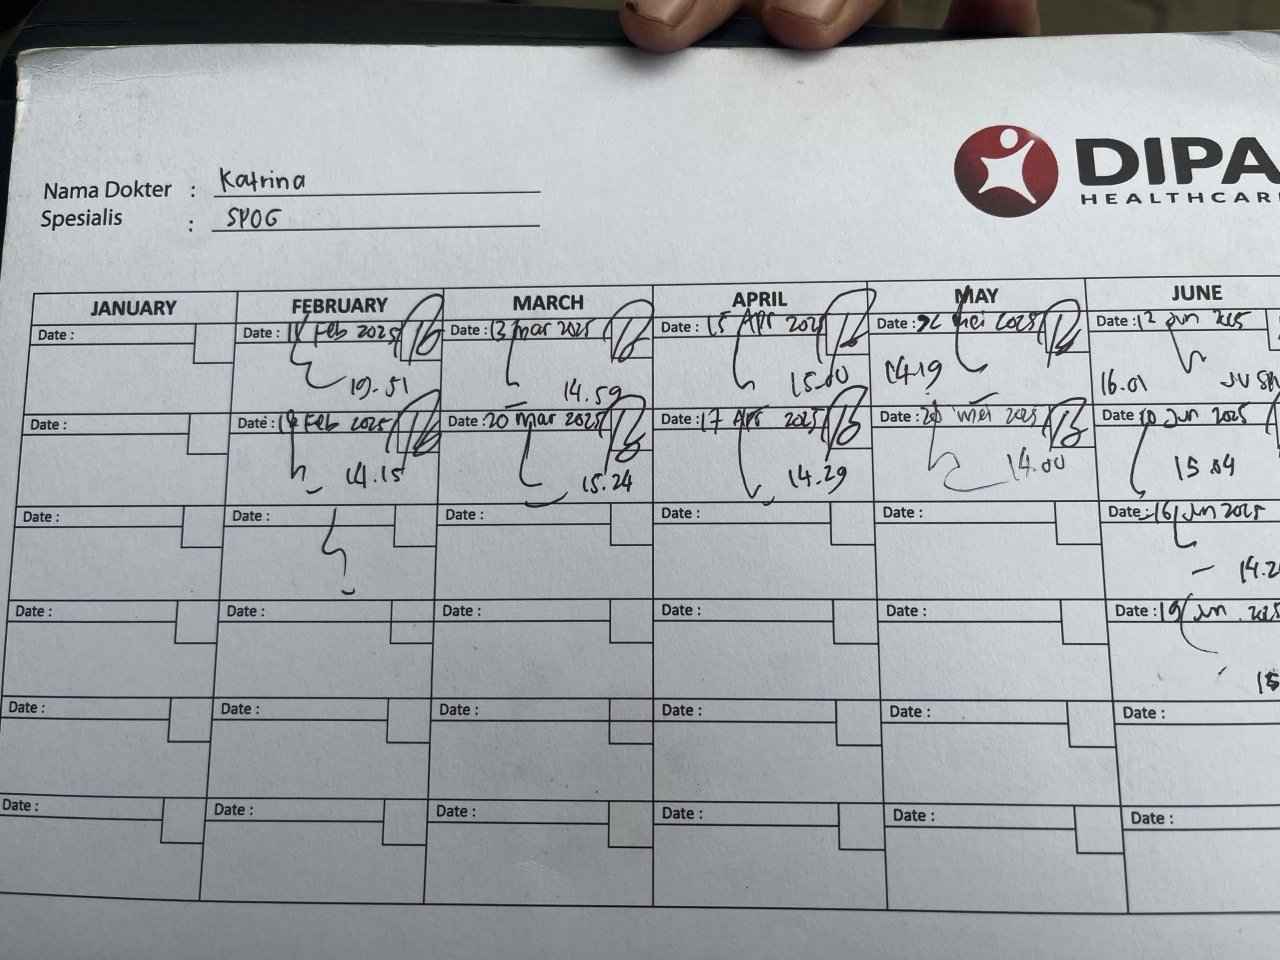 DIPA
HEALTHCAR
Nama Dokter : Katrina
Spesialis : SPOG
JANUARY FEBRUARY MARCH APRIL MAY JUNE
Date : Date : Feb 2025 Date : 13 mar 2025 Date : 15 Apr 2025 Date : mei 2025 Date : 12 Jun 2025
19.51 14.59 15.00 14.19 16.01
Date : Date : Feb 2025 Date : 20 mar 2025 Date : 17 Apr 2025 Date : mei 2025 Date Jun 2025
14.15 15.24 14.29 14.00 15.04
Date : Date : Date : Date : Date : Date : 16 Jun 2025
14.2
Date : Date : Date : Date : Date : Date : 19 Jun . 2025
15
Date : Date : Date : Date : Date : Date :
Date : Date : Date : Date : Date : Date :